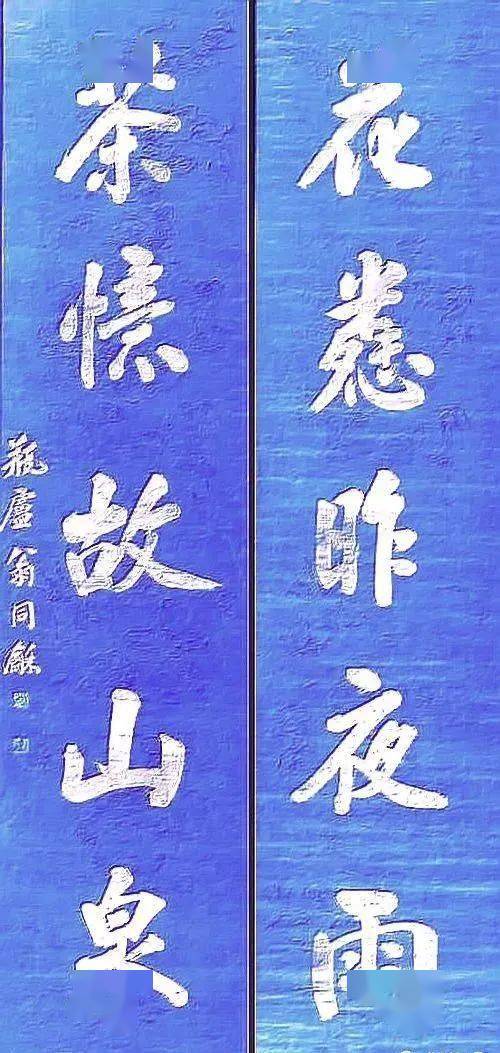 花昨夜雨
茶憶故山泉
瓶廬翁同龢